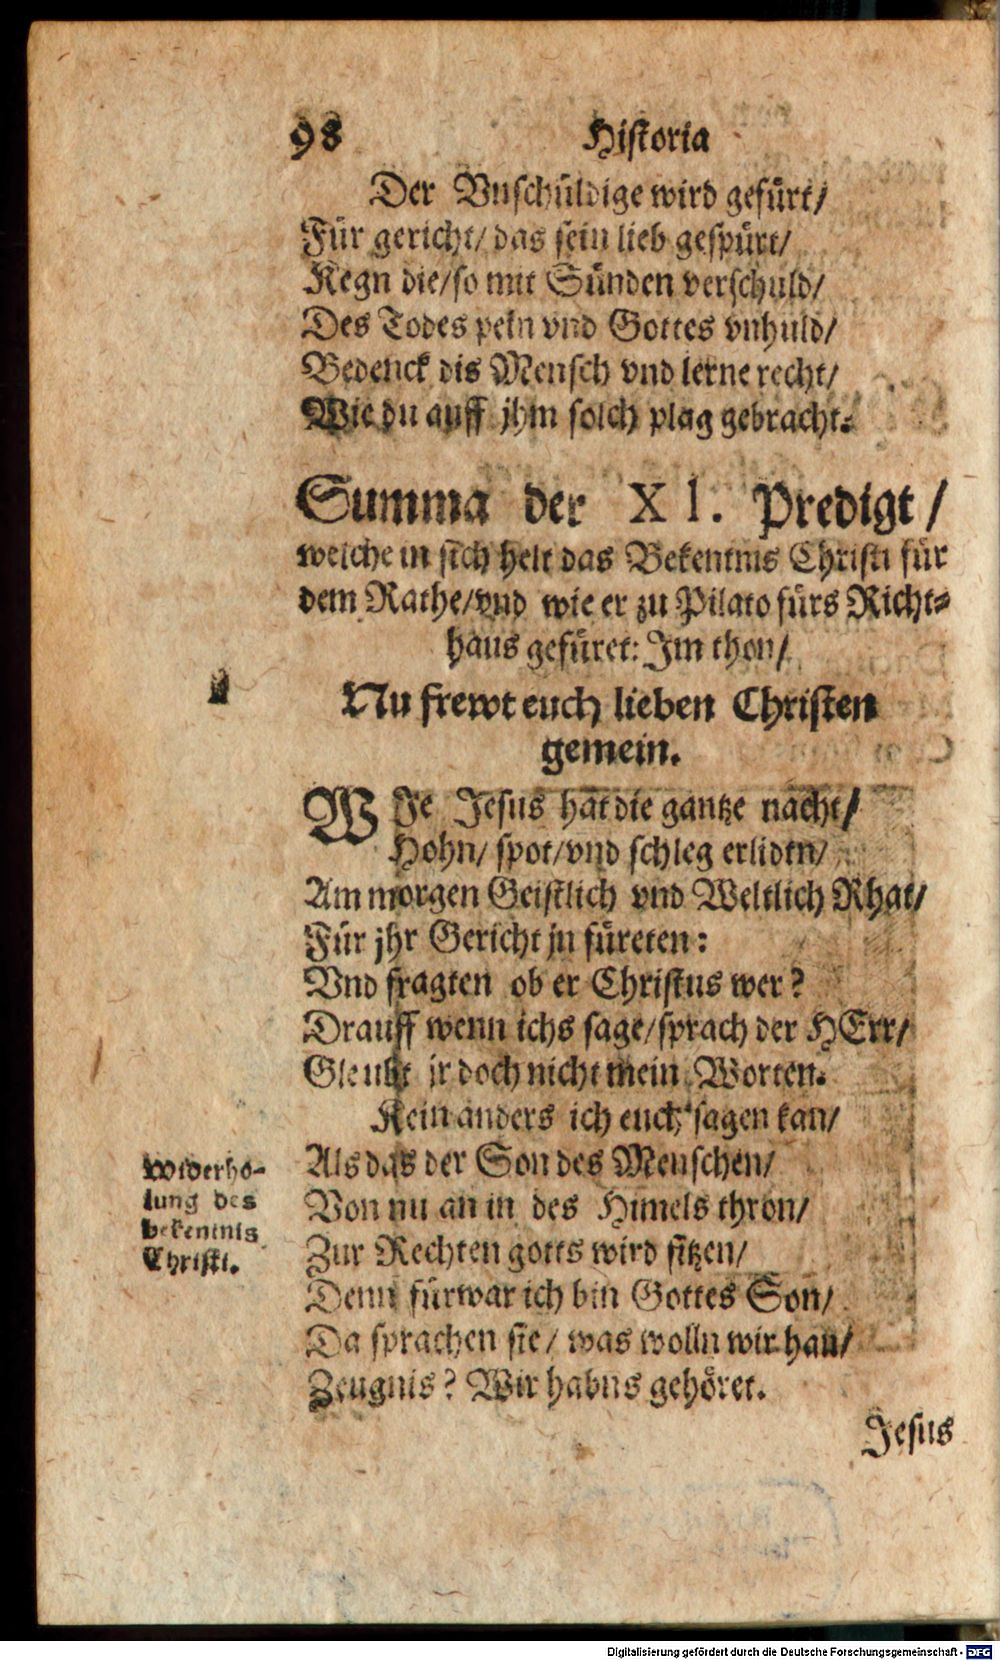 98 Historia
Der Vnschüldige wird gefürt/
Für gericht/ das sein lieb gespürt/
Kegn die/so mit Sünden verschuld/
Des Todes pein vnd Gottes vnhuld/
Bedenck dis Mensch vnd lerne recht/
Wie du auff jhm solch plag gebracht.
Summa der XI. Predigt/
welche in sich helt das Bekentnis Christi für
dem Rathe/vnd wie er zu Pilato fürs Richt-
haus gefüret: Im thon/
Nu frewt euch lieben Christen
gemein.
WIe Jesus hat die gantze nacht/
Hohn/ spot/vnd schleg erlidtn/
Am morgen Geistlich vnd Weltlich Rhat/
Für jhr Gericht jn füreten:
Vnd fragten ob er Christus wer?
Drauff wenn ichs sage/sprach der HErr/
Gleubt jr doch nicht mein Worten.
Kein anders ich euch sagen kan/
Als das der Son des Menschen/
Von nu an in des Himels thron/
Zur Rechten gotts wird sitzen/
Denn fürwar ich bin Gottes Son/
Da sprachen sie/ was wolln wir han/
Zeugnis? Wir habns gehöret.
Widerho-
lung des
bekentnis
Christi.
Jesus
Digitalisierung gefördert durch die Deutsche Forschungsgemeinschaft - DFG